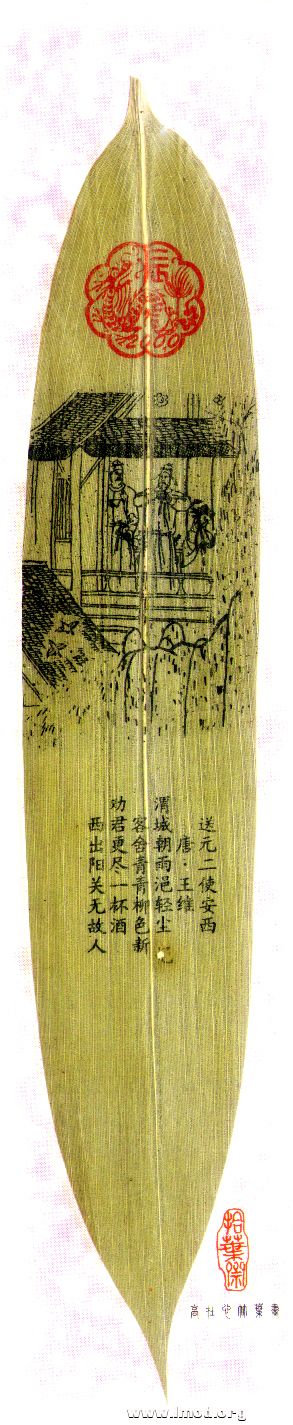 2000
送元二使安西
唐·王维
渭城朝雨浥轻尘
客舍青青柳色新
劝君更尽一杯酒
西出阳关无故人
拾叶斋
www.lmot.org